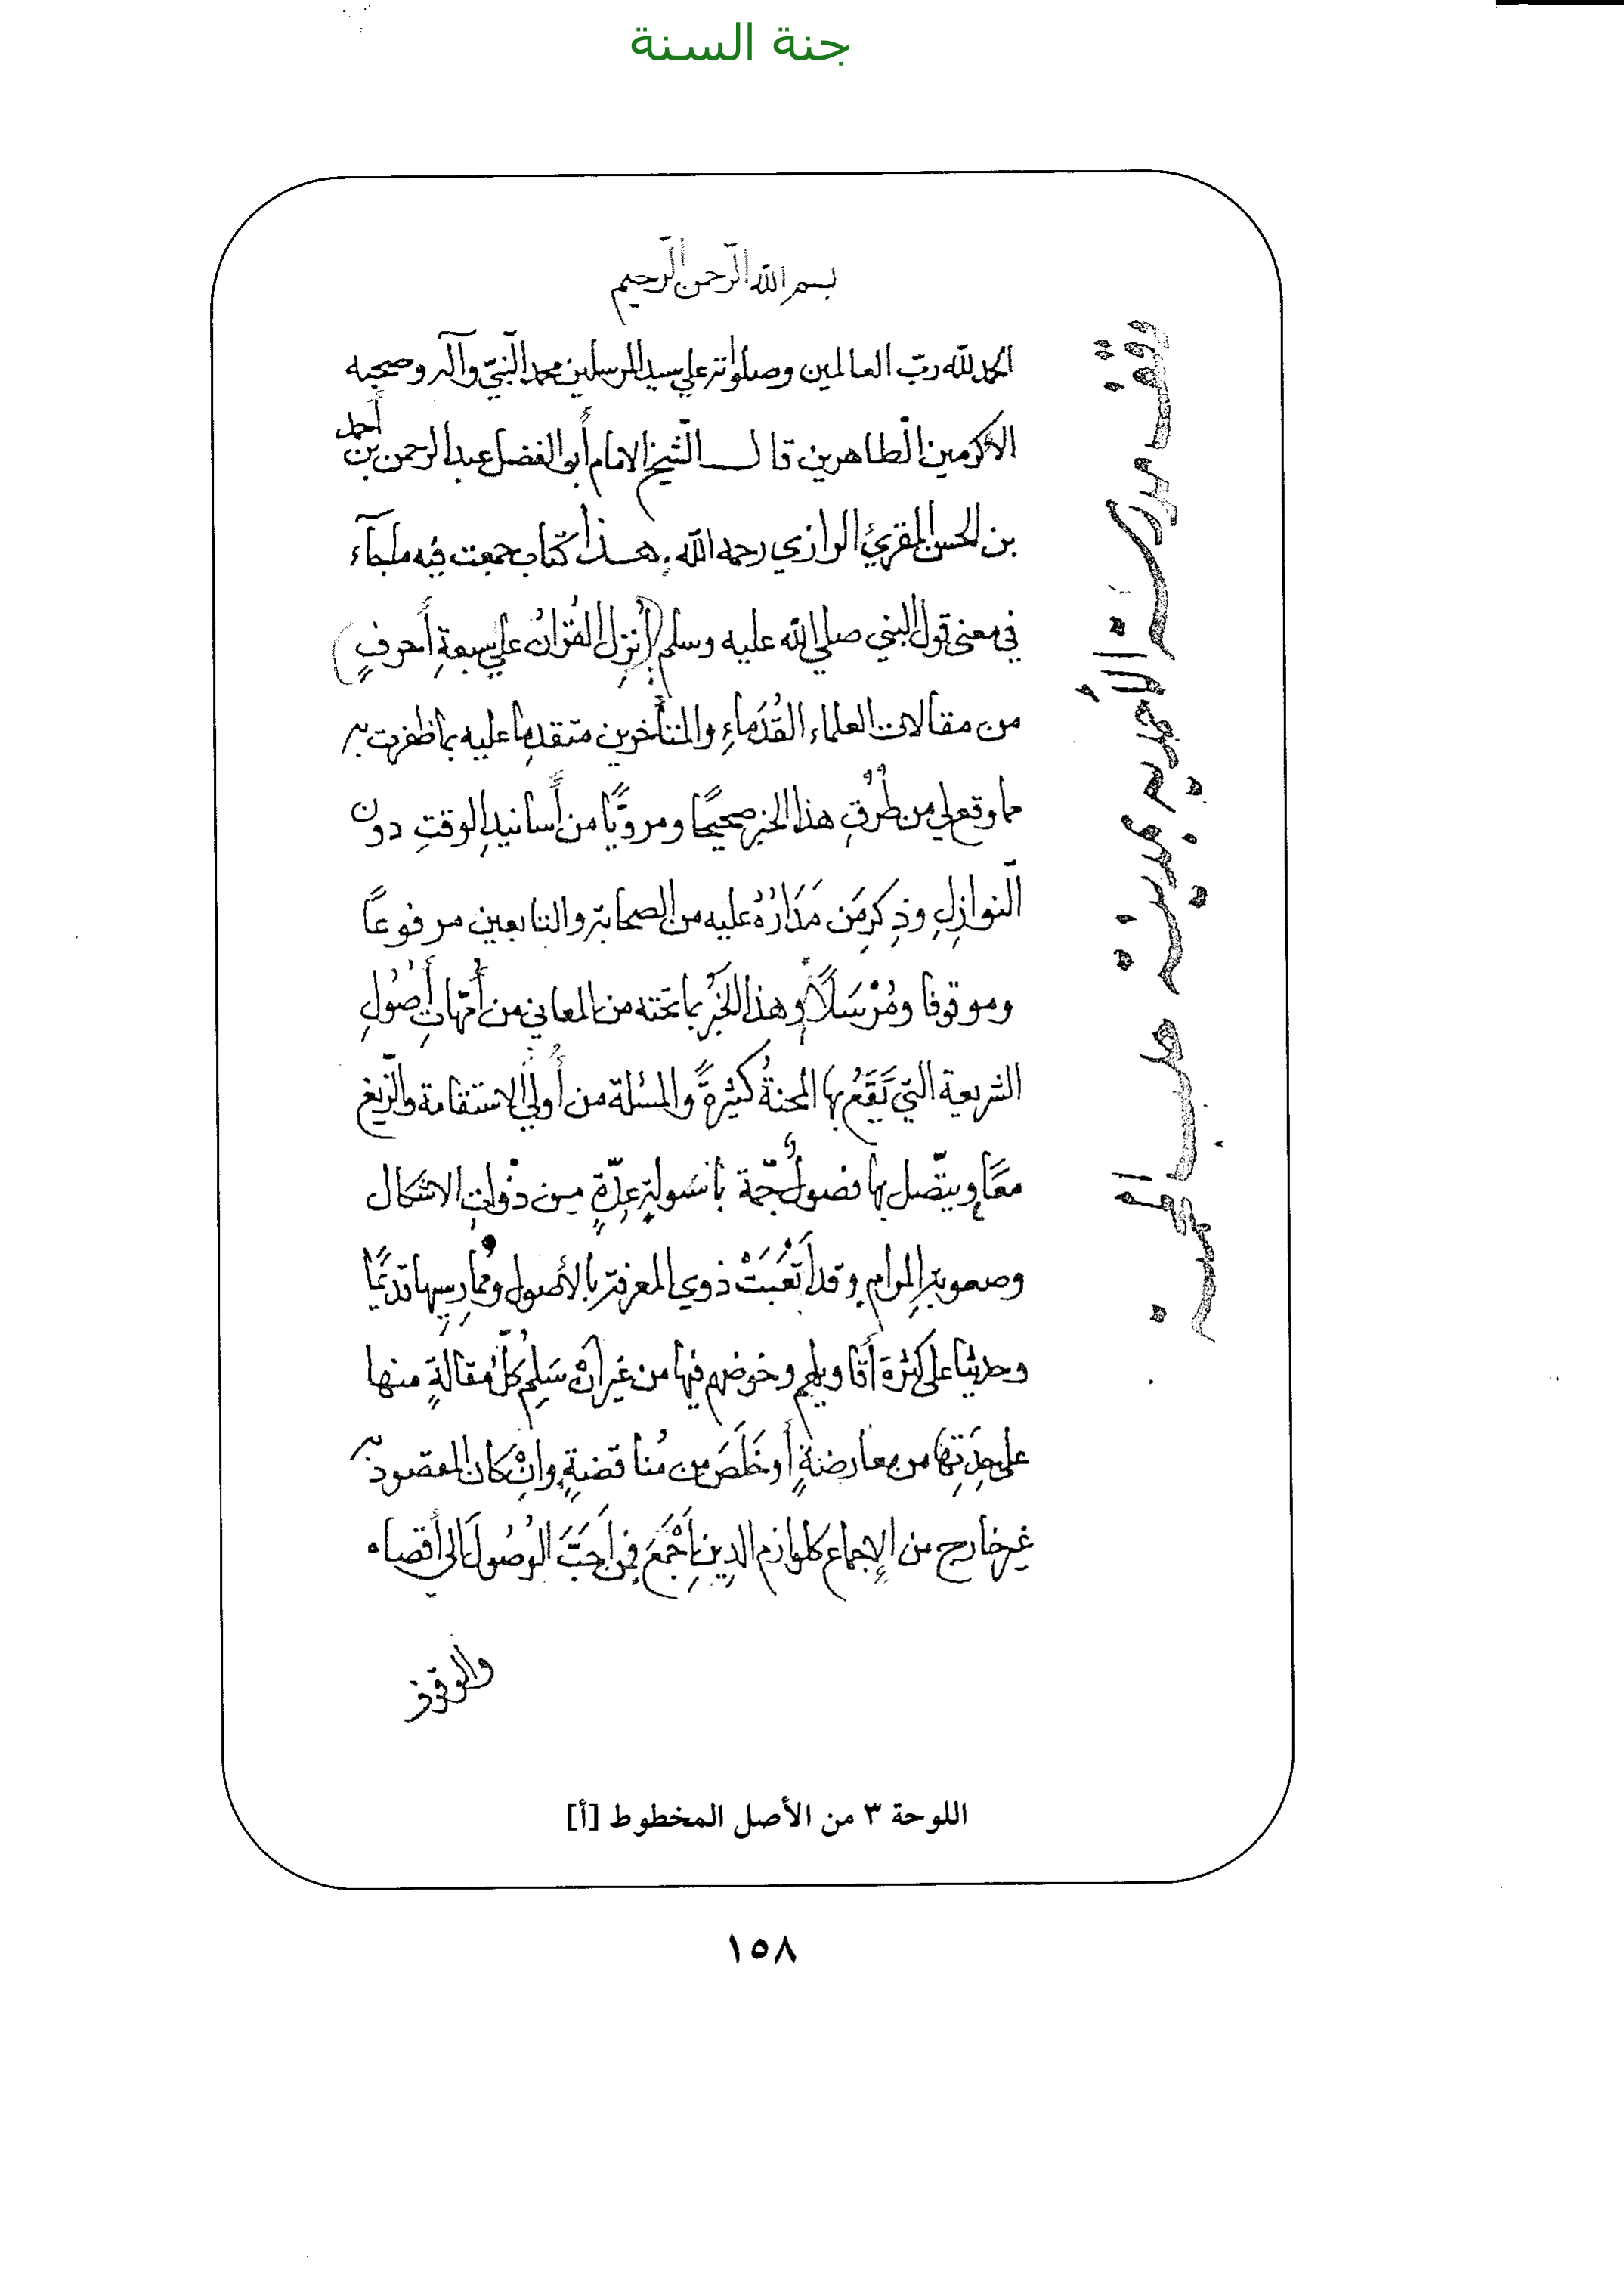 جنة السنة
بسم الله الرّحمن الرّحيم
الحمد لله ربّ العالمين وصلواته علي سيد المرسلين محمد النّبيّ وآله وصحبه
الأكرمين الطّاهرين قال الشّيخ الامام أبو الفضل عبد الرحمن بن أحمد
بن الحسن المقرئ الرازي رحمه الله هذا كتاب جمعت فيه ما جآء
في معنى قول النبي صلي الله عليه وسلم (أُنزِل القُرآنُ علي سبعةِ أحرفٍ)
من مقالات العلماء القُدَماءِ والمتأخرين متقدِما عليه بما ظفرت به
مما وقع لي من طُرُقِ هذا الخبر صحيحًا ومرويًّا من أسانيدِ الوقتِ دون
النّوازِلِ وذِكرِ مَن مَدَارُهُ عليه من الصحابة والتابعين مرفوعاً
وموقوفا ومُرْسَلًا وهذا الخَبَرُ بما تحته من المعاني من أمّهاتِ أُصُولِ
الشريعة الّتي تَقَعُ بها المحنةُ كثيرةً والمسئلة من أُولي الاستقامة والزّيغ
معًا ويتّصل بها فصولٌ جمّة بأسولةٍ عِدّةٍ من ذَواتِ الاشكال
وصعوبةِ المرام وقد أَتْعَبَتْ ذوي المعرفة بالأصول ومُمارِسِيها قديمًا
وحديثا على كثرة أقاويلهم وخوضهم فيها من غير أنْ سَلِم كلُّ مقالةٍ منها
على حِدَتِها من معارضةٍ أو خَلَصَ من مُناقضةٍ وانْ كان المقصود به
غير خارج من الإجماع كلوازم الدِينِ أَجْمَعَ فمن أَحَبَّ الوُصُولَ الي أقصاه
والوقوف
وقف مدرسة الأحمدية بمدينة حلب المحمية
اللوحة ٣ من الأصل المخطوط [أ]
١٥٨